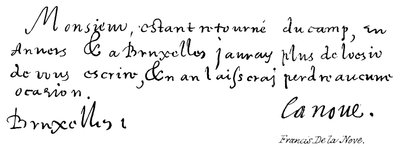 Monsieur, estant retourné du camp, en
Anvers & a Bruxelles jauray plus de loesir
de vous escrire, & n an laisseraj perdre aucune
ocasion.
Bruxelles
Lanoue.
Francis. De la Nove.